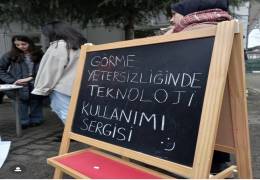 GÖRME
YETERSİZLİĞİNDE
TEKNOLOJİ
KULLANIMI
SERGİSİ :)